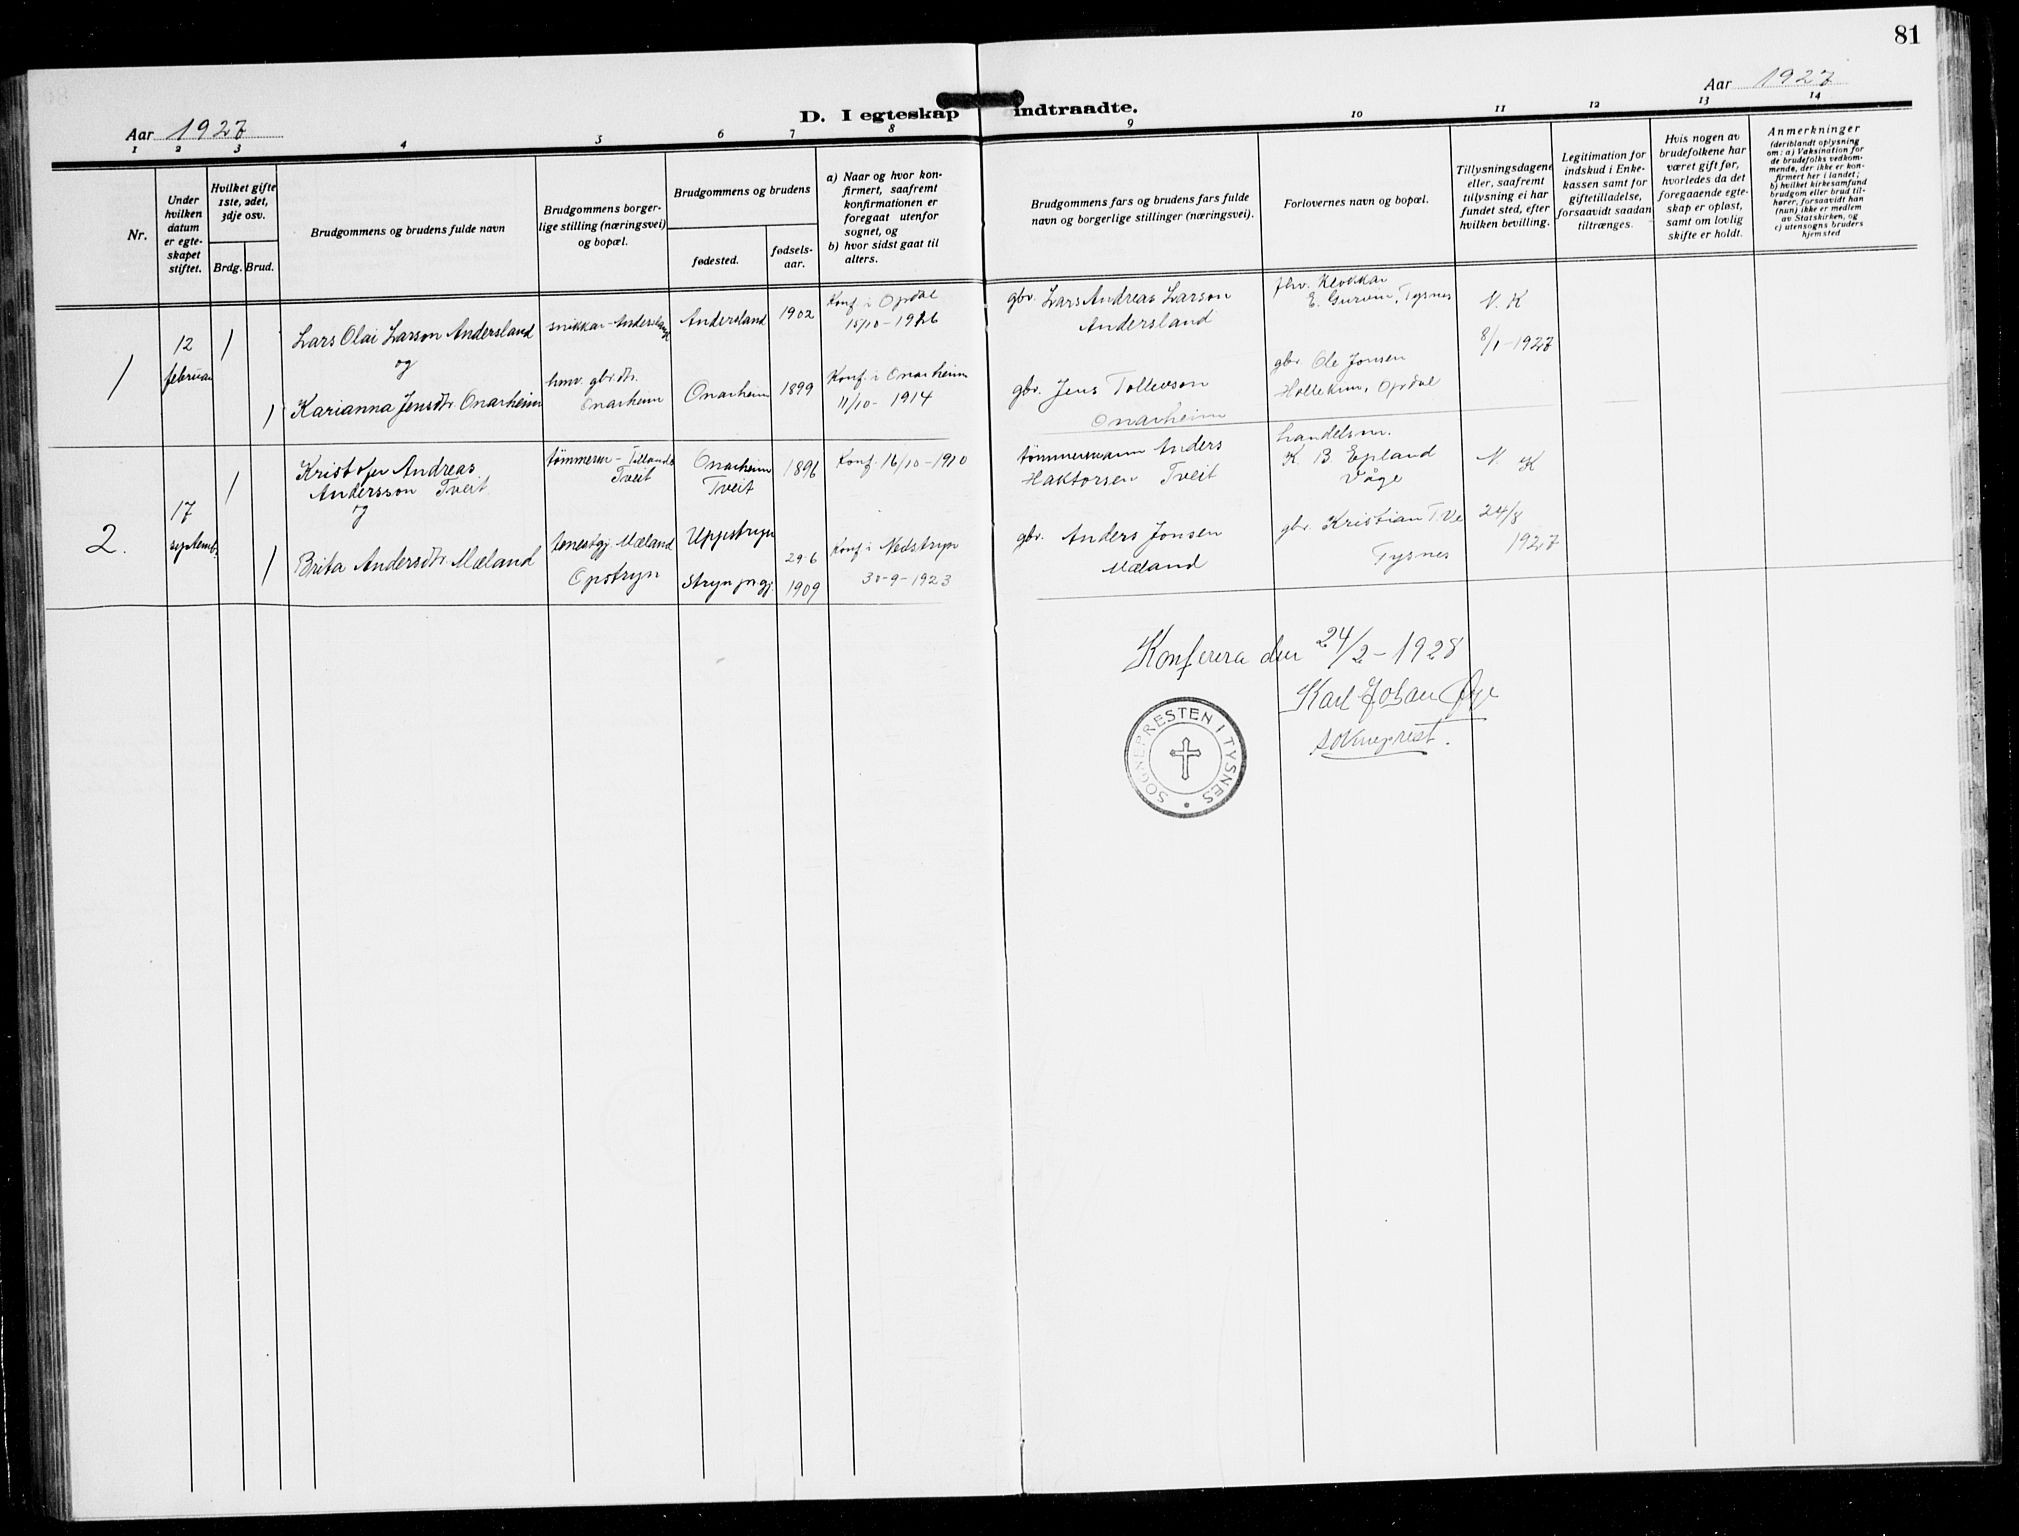 81
Aar 1927
Aar 1927
D. I egteskap indtraadte.
1 2 3 4 5 6 7 8 9 10 11 12 13 14
Nr.
Under
hvilken
datum
er egte-
skapet
stiftet.
Hvilket gifte
1ste, 2det,
3dje osv.
Brdg. Brud.
Brudgommens og brudens fulde navn
Brudgommens borger-
lige stilling (næringsvei)
og bopæl.
Brudgommens og brudens
fødested.
fødsels-
aar.
a) Naar og hvor kon-
firmert, saafremt
konfirmationen er
foregaat utenfor
sognet, og
b) hvor sidst gaat til
alters.
Brudgommens fars og brudens fars fulde
navn og borgerlige stillinger (næringsvei).
Forlovernes navn og bopæl.
Tillysningsdagene
eller, saafremt
tillysning ei har
fundet sted, efter
hvilken bevilling.
Legitimation for
indskud i Enke-
kassen samt for
giftetilladelse,
forsaavidt saadan
tiltrænges.
Hvis nogen av
brudefolkene har
været gift før,
hvorledes da det
foregaaende egte-
skap er opløst,
samt om lovlig
skifte er holdt.
Anmerkninger
(deriblandt oplysning
om: a) Vaksination for
de brudefolks vedkom-
mende, der ikke er kon-
firmert her i landet;
b) hvilket kirkesamfund
brudgom eller brud til-
hører, forsaavidt han
(hun) ikke er medlem
av Statskirken, og
c) utensogns bruders
hjemsted
1
12
februar
1
Lars Olai Larson Andersland
og
snikkar - Andersland
Andersland
1902
Konf. i Opdal
15/10-1916
gbr. Lars Andreas Larson
Andersland
fhv. Klokkar
E. Gurvin, Tysnes
N. K
8/1-1927
1
Karianna Jensdtr Onarheim
hmv. gbr.dtr.
Onarheim
Onarheim
1899
Konf. i Onarheim
11/10-1914
gbr. Jens Tollevson
Onarheim
gbr. Ole Jonsen
Hollekim, Opdal
2.
17
septemb.
1
Kristofer Andreas
Andersson Tveit
og
Tveit
Onarheim
Tveit
1896
Konf. 16/10-1910
tømmermann Anders
Haktorsen Tveit
handelsm.
K. B. Epland
Våge
N. K
24/8
1927
1
Brita Andersdtr Mæland
tenestgj. Mæland
Opstryn
Uppstryn
Stryn prgj.
29-6
1909
Konf. i Nedstryn
30-9-1923
gbr. Anders Jonsen
Mæland
gbr. Kristian
Tysnes
Konferera den 24/2-1928
Karl Johan Øye
sokneprest.
SOGNEPRESTEN I TYSNES